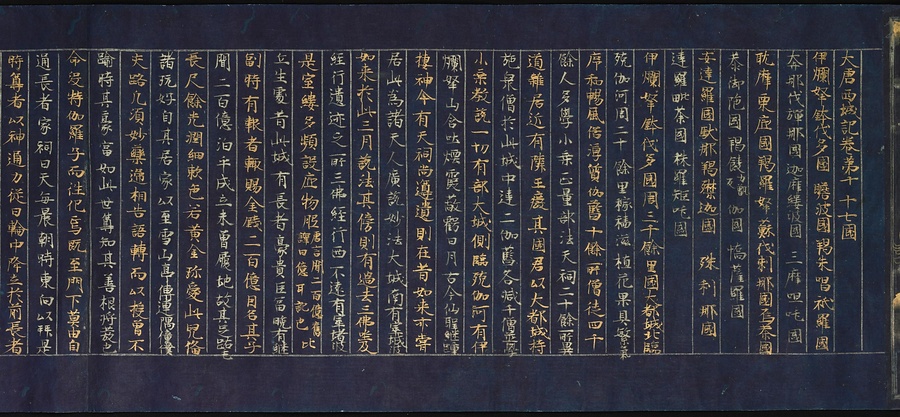 大唐西域記卷第十 十七國
伊爛拏鉢伐多國 瞻波國 羯朱嗢祇羅國
奔那伐彈那國 迦摩縷波國 三摩呾吒國
耽摩栗底國 羯羅拏蘇伐剌那國 烏荼國
恭御陀國 羯餕伽國 憍薩羅國
安達羅國 馱那羯磔迦國 珠利耶國
達羅毗荼國 秣羅矩吒國
伊爛拏鉢伐多國周三千餘里國大都城北臨
殑伽河周二十餘里稼穡滋植花果具繁氣
序和暢風俗淳質伽藍十餘所僧徒四千
餘人多學小乘正量部法天祠二十餘所異
道雜居近有隣王廢其國君以大都城持
施衆僧於此城中建二伽藍各減千僧並學
小乘教說一切有部大城側臨殑伽河有伊
爛拏山含吐煙霞蔽虧日月古今仙聖繼踵
棲神今有天祠尚遵遺則在昔如來亦嘗
居此為諸天人廣說妙法大城南有窣堵波
如來於此三月說法其傍則有過去三佛坐及
經行遺迹之所三佛經行西不遠有窣堵波
是室縷多頻設底拘胝唐言聞二百億舊譯曰億耳訛也比
丘生處昔此城有長者豪貴巨富晚有繼
嗣時有報者輒賜金錢二百億因名其子
聞二百億洎乎成立未曾履地故其足跖毛
長尺餘光潤細軟色若黃金珍愛此兒備
諸玩好自其居家以至雪山亭傳連隅僮僕
交路凡須妙藥遞相告語轉而以授曾不
踰時其豪富如此世尊知其善根將發也
命沒特伽羅子而往化焉既至門下莫由自
通長者家祠日天每晨朝時東向以拜是
時尊者以神通力從日輪中降立於前長者